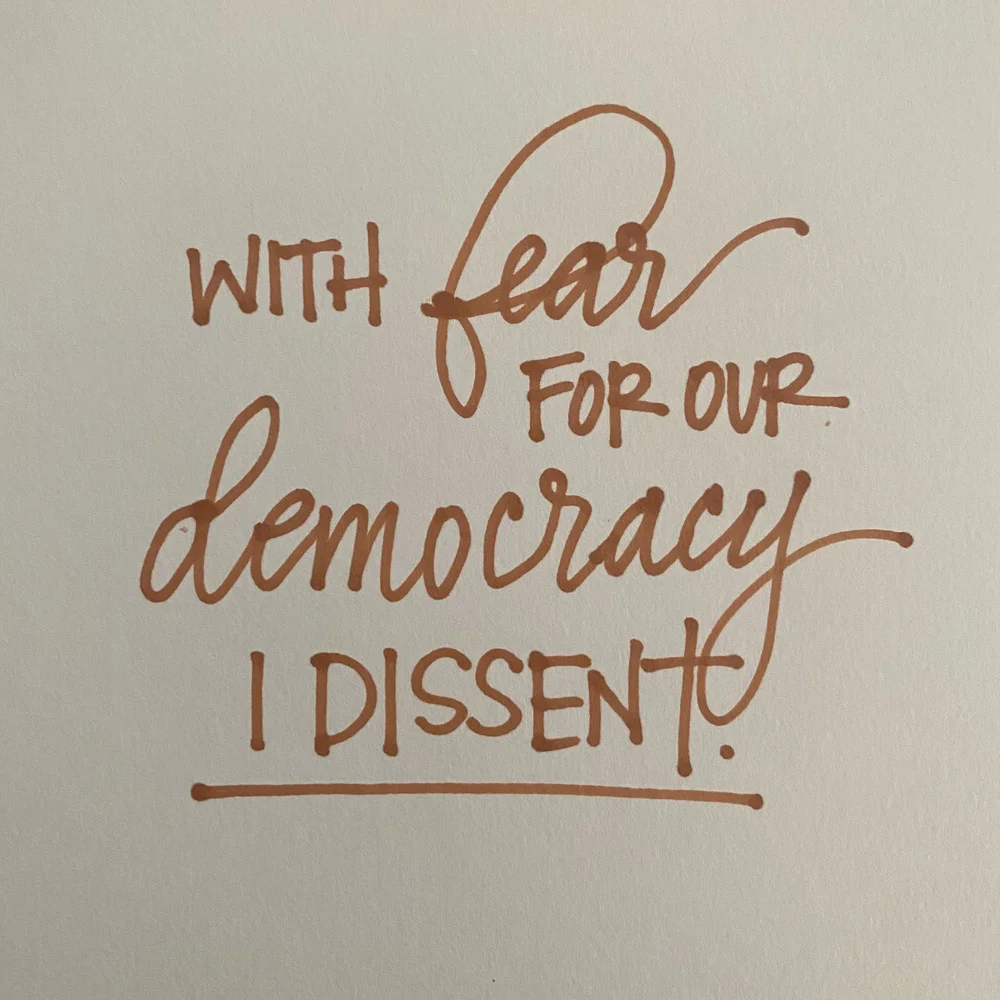 WITH fear
FOR OUR
democracy
I DISSENT.